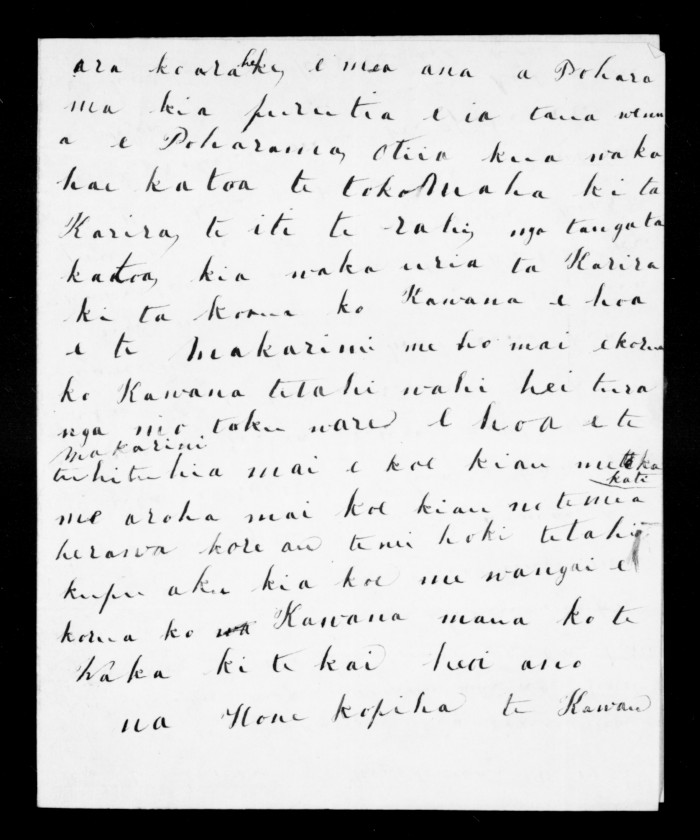 ara ko araheke, e mea ana a Pohara
ma kia purutia e ia taua wenu
a e Poharama, Otiia kua waka
hae katoa te tokoMaha ki ta
Karira, te iti te rahi, nga tangata
katoa, kia waka uria ta Karira
ki ta korua ko Kawana e hoa
e te Makarini me ho mai e korua
ko Kawana tetahi wahi hei tura
nga mo taku ware E hoa e te
Makarini
tuhituhia mai e koe kiau me te ka
kati
me aroha mai koe kiau no te mea
herawa kore au tenei hoki tetahi
kupu aku kia koe me wangai e
korua ko Kawana maua ko te
Waka ki te kai heoi ano
na Hone kopiha te Kawau